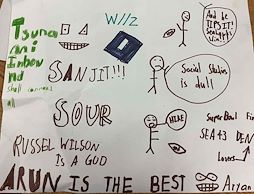 Tsunami
Inbound
W//z
SANJIT!!!
Social Studies
is dull
SOUR
HIKE
Super Bowl
SEA 43 DEN
Losers
RUSSEL WILSON
IS A GOD
ARUN IS THE BEST
Aryan